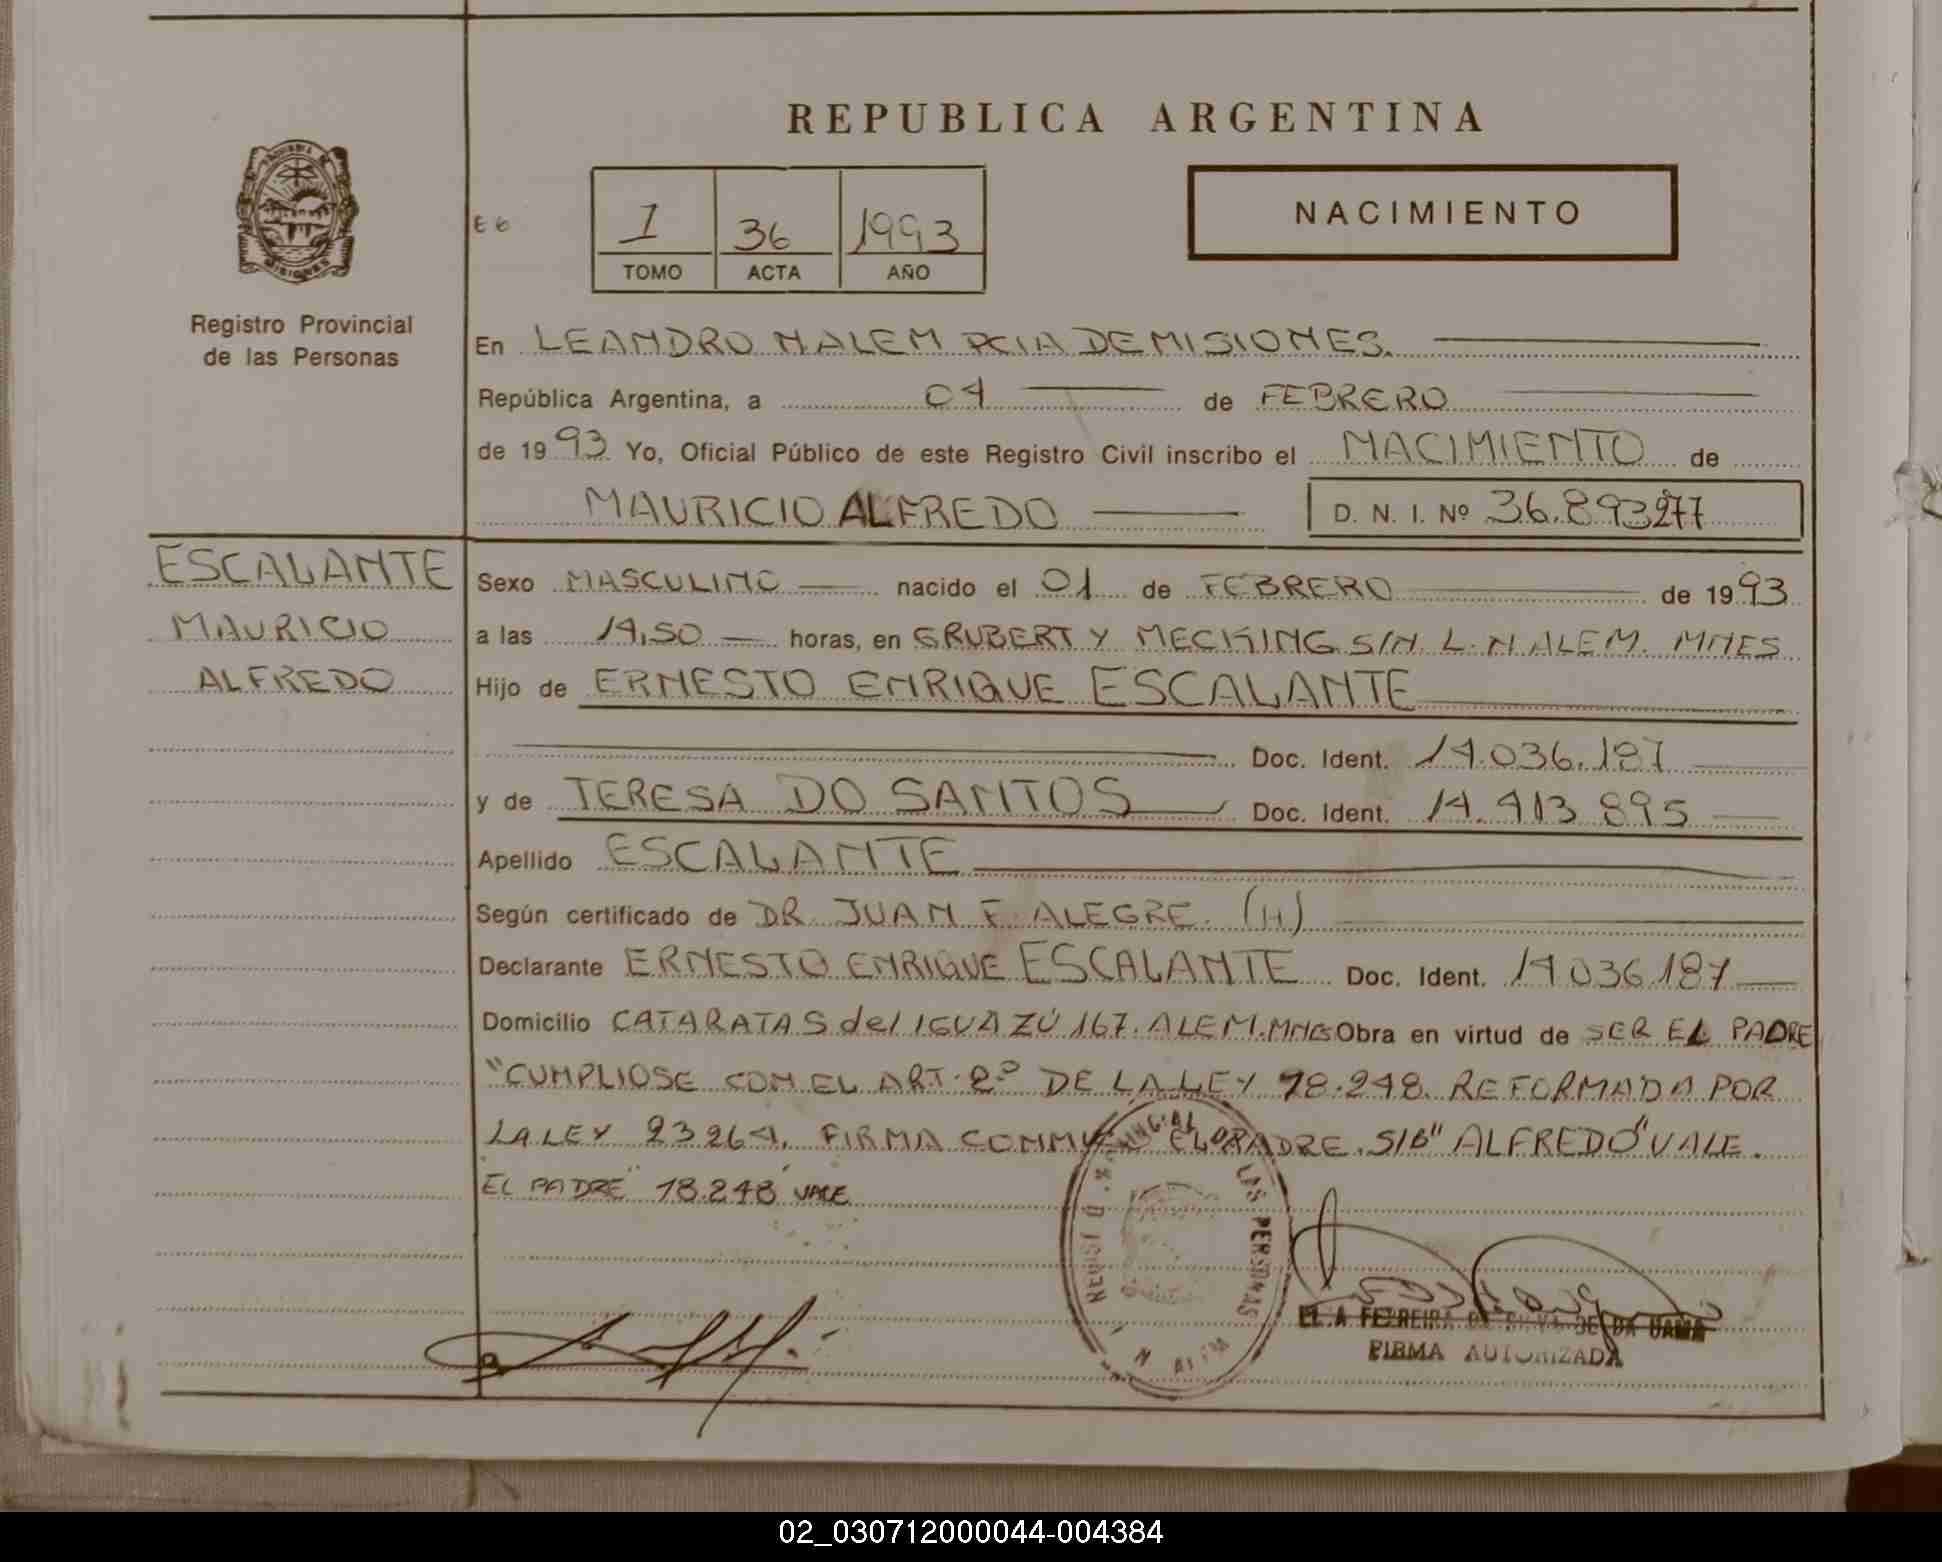 REPUBLICA ARGENTINA
PROVINCIA DE MISIONES
Registro Provincial
de las Personas
E 6
1 36 1993
TOMO ACTA AÑO
NACIMIENTO
En LEANDRO N ALEM PCIA DE MISIONES.
República Argentina, a 04 de FEBRERO
de 1993 Yo, Oficial Público de este Registro Civil inscribo el NACIMIENTO de
MAURICIO ALFREDO D. N. I. Nº 36.893277
ESCALANTE
MAURICIO
ALFREDO
Sexo MASCULINO nacido el 01 de FEBRERO de 1993
a las 14,50 horas, en GRUBERT Y MECKING S/N. L. N ALEM. MNES
Hijo de ERNESTO ENRIQUE ESCALANTE
Doc. Ident. 14.036.187
y de TERESA DO SANTOS Doc. Ident. 14.413 895
Apellido ESCALANTE
Según certificado de DR JUAN F. ALEGRE. (H)
Declarante ERNESTO ENRIQUE ESCALANTE Doc. Ident. 14 036 187
Domicilio CATARATAS del IGUAZÚ 167. ALEM. MNES Obra en virtud de SER EL PADRE
"CUMPLIOSE CON EL ART. 2º DE LA LEY 18.248. REFORMADA POR
LA LEY 23264. FIRMA CONMIGO EL PADRE. S/B "ALFREDO" VALE.
EL PADRE 18.248 VALE
LAS PERSONAS
N. ALEM
FIRMA AUTORIZADA
02_030712000044-004384